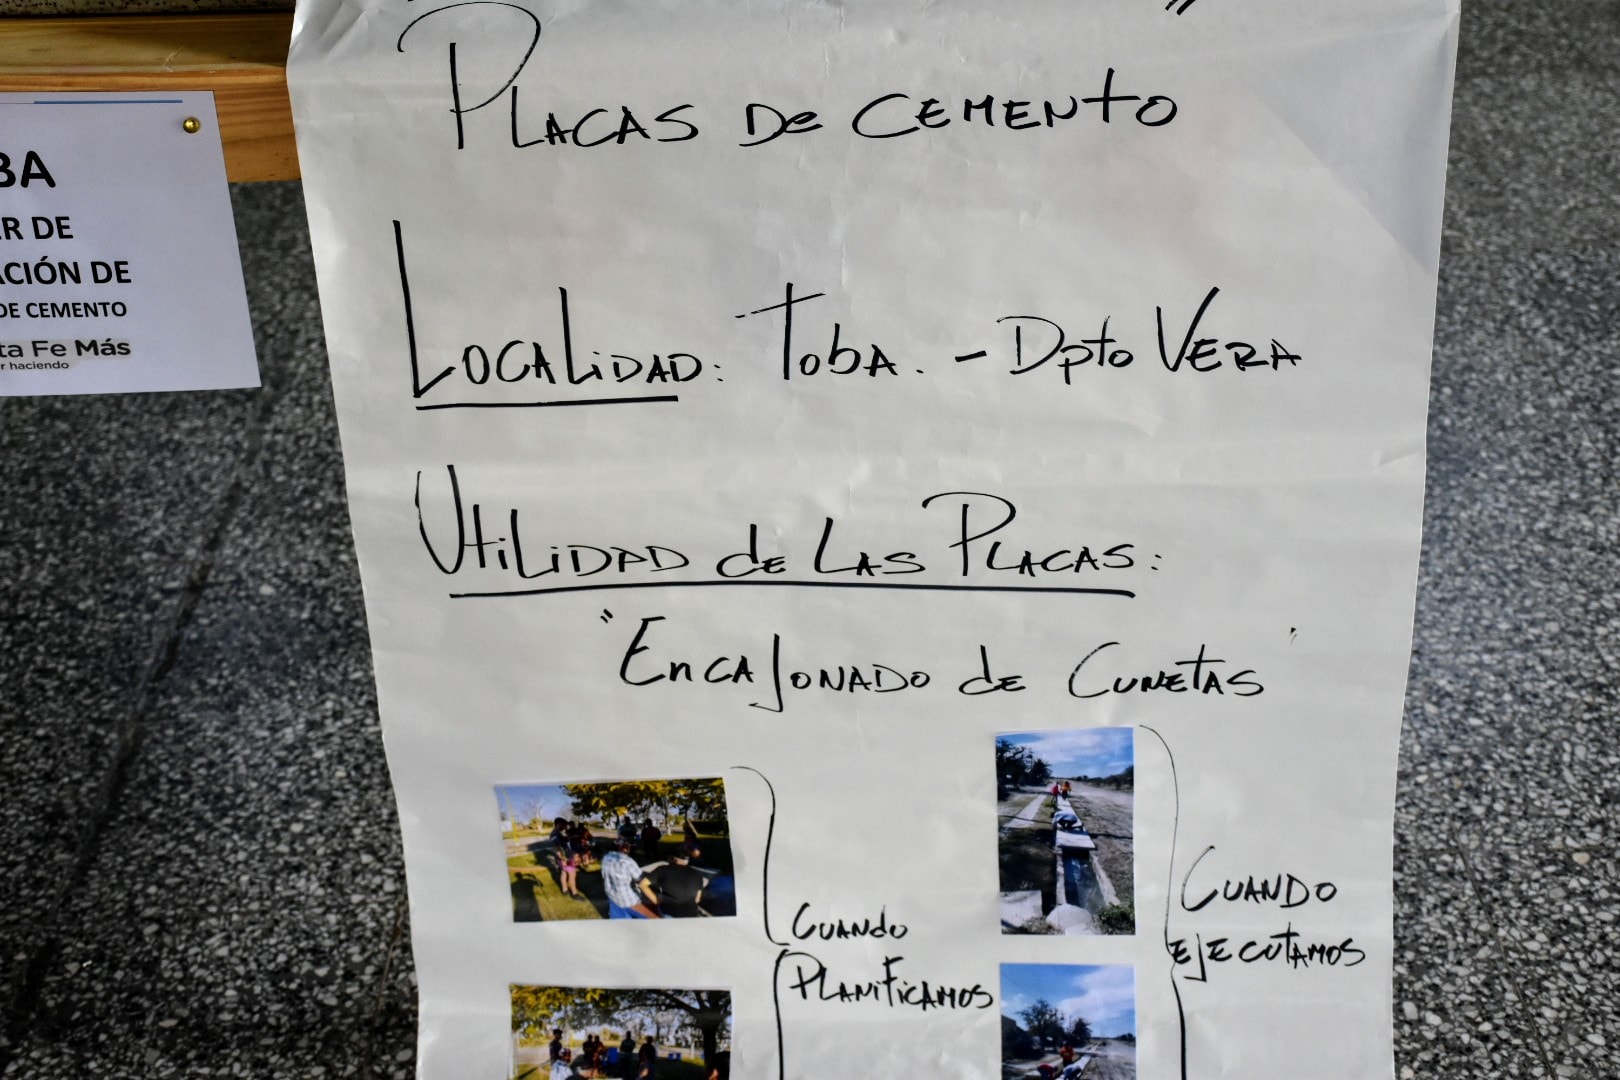 PLACAS DE CEMENTO
LOCALIDAD: TOBA. - Dpto VERA
UTILIDAD de LAS PLACAS:
"ENCAJONADO de CUNETAS"
CUANDO
PLANIFICAMOS
CUANDO
EJECUTAMOS
DE
DE
DE CEMENTO
Fe Más
haciendo